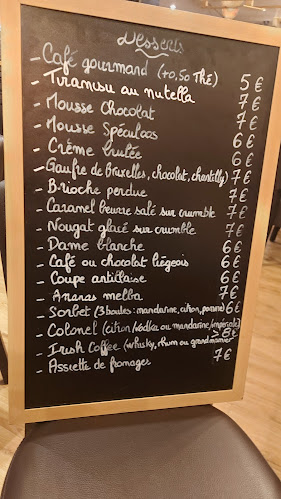 Desserts
- Café gourmand (+0,50 Thé) 5 €
- Tiramisu au nutella 7 €
- Mousse Chocolat 7 €
- Mousse Spéculoos 6 €
- Crème brulée 6 €
- Gaufre de Bruxelles, chocolat, chantilly) 7 €
- Brioche perdue 7 €
- Caramel beurre salé sur crumble 7 €
- Nougat glacé sur crumble 7 €
- Dame blanche 6 €
- Café ou chocolat liégeois 6 €
- Coupe antillaise 6 €
- Ananas melba 7 €
- Sorbet (3 boules: mandarine, citron, pomme) 6 €
- Colonel (citron/vodka ou mandarine/impériale)
- Irish Coffee (whisky, rhum ou grand marnier > 8 €
- Assiette de fromages 7 €